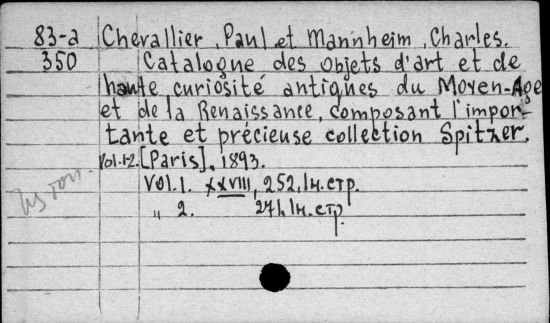 83-a Chevallier, Paul et Mannheim, Charles.
350 Catalogne des objets d'art et de
haute curiosité antiques du Moyen-Age
et de la Renaissance, composant l'impor-
tante et précieuse collection Spitzer.
Vol.1-2. [Paris], 1893.
Vol.1. XXVIII, 252, 1н.стр.
„ 2. 271, 1н.стр.